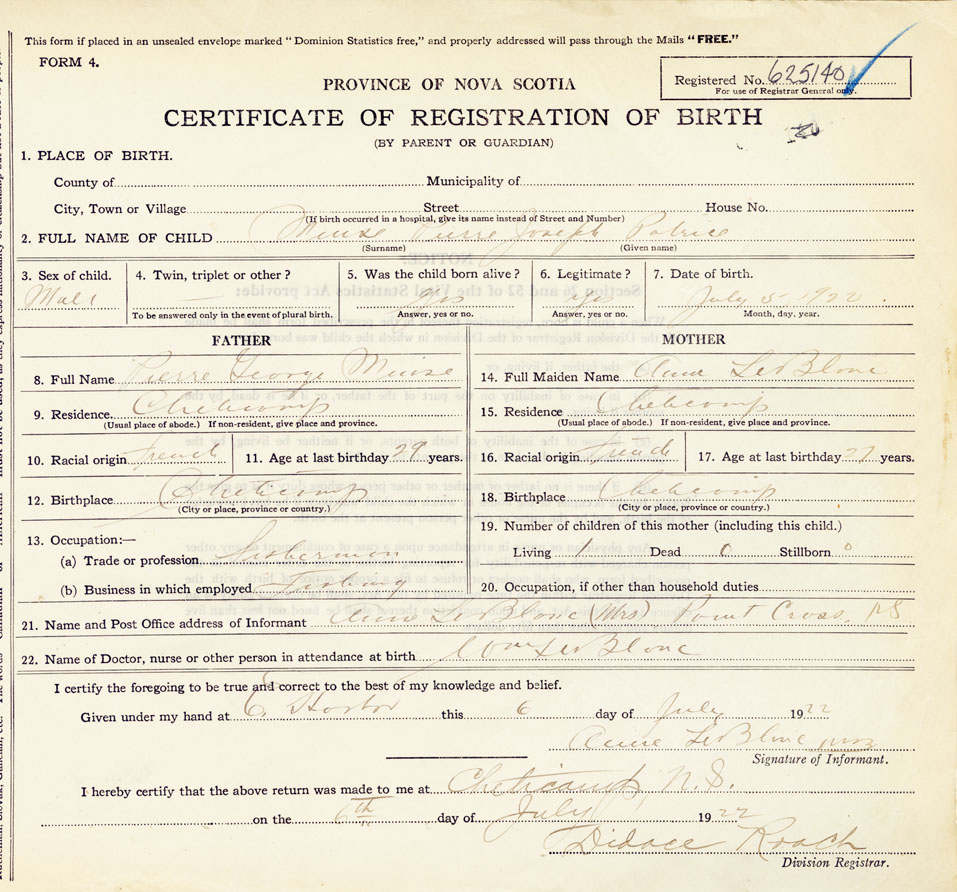 This form if placed in an unsealed envelope marked "Dominion Statistics free," and properly addressed will pass through the Mails "FREE."
FORM 4.
Registered No. 625140
For use of Registrar General only.
PROVINCE OF NOVA SCOTIA
CERTIFICATE OF REGISTRATION OF BIRTH
(BY PARENT OR GUARDIAN)
1. PLACE OF BIRTH.
County of Municipality of
City, Town or Village Street House No.
(If birth occurred in a hospital, give its name instead of Street and Number)
2. FULL NAME OF CHILD Muise Pierre Joseph Patrice
(Surname) (Given name)
3. Sex of child. 4. Twin, triplet or other? 5. Was the child born alive? 6. Legitimate? 7. Date of birth.
Male — yes yes July 5-1922
To be answered only in the event of plural birth. Answer, yes or no. Answer, yes or no. Month, day, year.
FATHER MOTHER
8. Full Name Pierre George Muise 14. Full Maiden Name Anne LeBlanc
9. Residence. Cheticamp 15. Residence Cheticamp
(Usual place of abode.) If non-resident, give place and province. (Usual place of abode.) If non-resident, give place and province.
10. Racial origin french 11. Age at last birthday 29 years. 16. Racial origin french 17. Age at last birthday 27 years.
12. Birthplace Cheticamp 18. Birthplace Cheticamp
(City or place, province or country.) (City or place, province or country.)
13. Occupation:— 19. Number of children of this mother (including this child.)
(a) Trade or profession fisherman Living 1 Dead 0 Stillborn 0
(b) Business in which employed fishing 20. Occupation, if other than household duties
21. Name and Post Office address of Informant Anne LeBlanc (Mrs) Point Cross, NS
22. Name of Doctor, nurse or other person in attendance at birth LeBlanc
I certify the foregoing to be true and correct to the best of my knowledge and belief.
Given under my hand at E. Harbor this 6 day of July 1922
Anne LeBlanc
Signature of Informant.
I hereby certify that the above return was made to me at Cheticamp, N.S.
on the 6th day of July 1922
Didace Roach
Division Registrar.